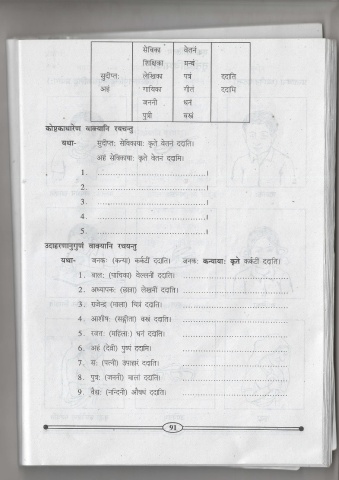 सेविका वेतनं
शिक्षिका ग्रन्थं
सुदीप्तः लेखिका पत्रं ददाति
अहं गायिका गीतं ददामि
जननी धनं
पुत्री वस्त्रं
कोष्ठकाधारेण वाक्यानि रचयन्तु
यथा- सुदीप्तः सेविकायाः कृते वेतनं ददाति।
अहं सेविकायाः कृते वेतनं ददामि।
1. ..............................।
2. ..............................।
3. ..............................।
4. ..............................।
5. ..............................।
उदाहरणानुगुणं वाक्यानि रचयन्तु
यथा- जनकः (कन्या) कर्कटीं ददाति। जनकः कन्यायाः कृते कर्कटीं ददाति।
1. बालः (पाचिका) वेल्लनीं ददाति। ..............................
2. अध्यापकः (छात्रा) लेखनीं ददाति। ..............................
3. राजेन्द्रः (माला) चित्रं ददाति। ..............................
4. आशीषः (सङ्गीता) वस्त्रं ददाति। ..............................
5. रजतः (महिला) धनं ददाति। ..............................
6. अहं (देवी) पुष्पं ददामि। ..............................
7. सः (पत्नी) उपहारं ददाति। ..............................
8. पुत्रः (जननी) मालां ददाति। ..............................
9. वैद्यः (नन्दिनी) औषधं ददाति। ..............................
91